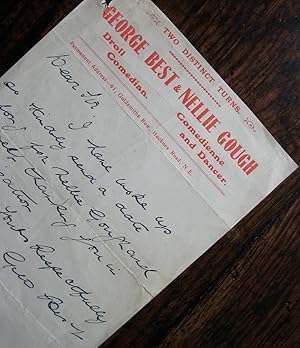 TWO DISTINCT TURNS,
GEORGE BEST & NELLIE GOUGH
Droll
Comedian
Comedienne
and Dancer.
Permanent Address—91, Goldsmiths Row, Hackney Road, N.E.
Dear Sir I have
up
so Kindly send a date
for Nellie Gough and
thanking you in
Yours Respectfully
Geo Best